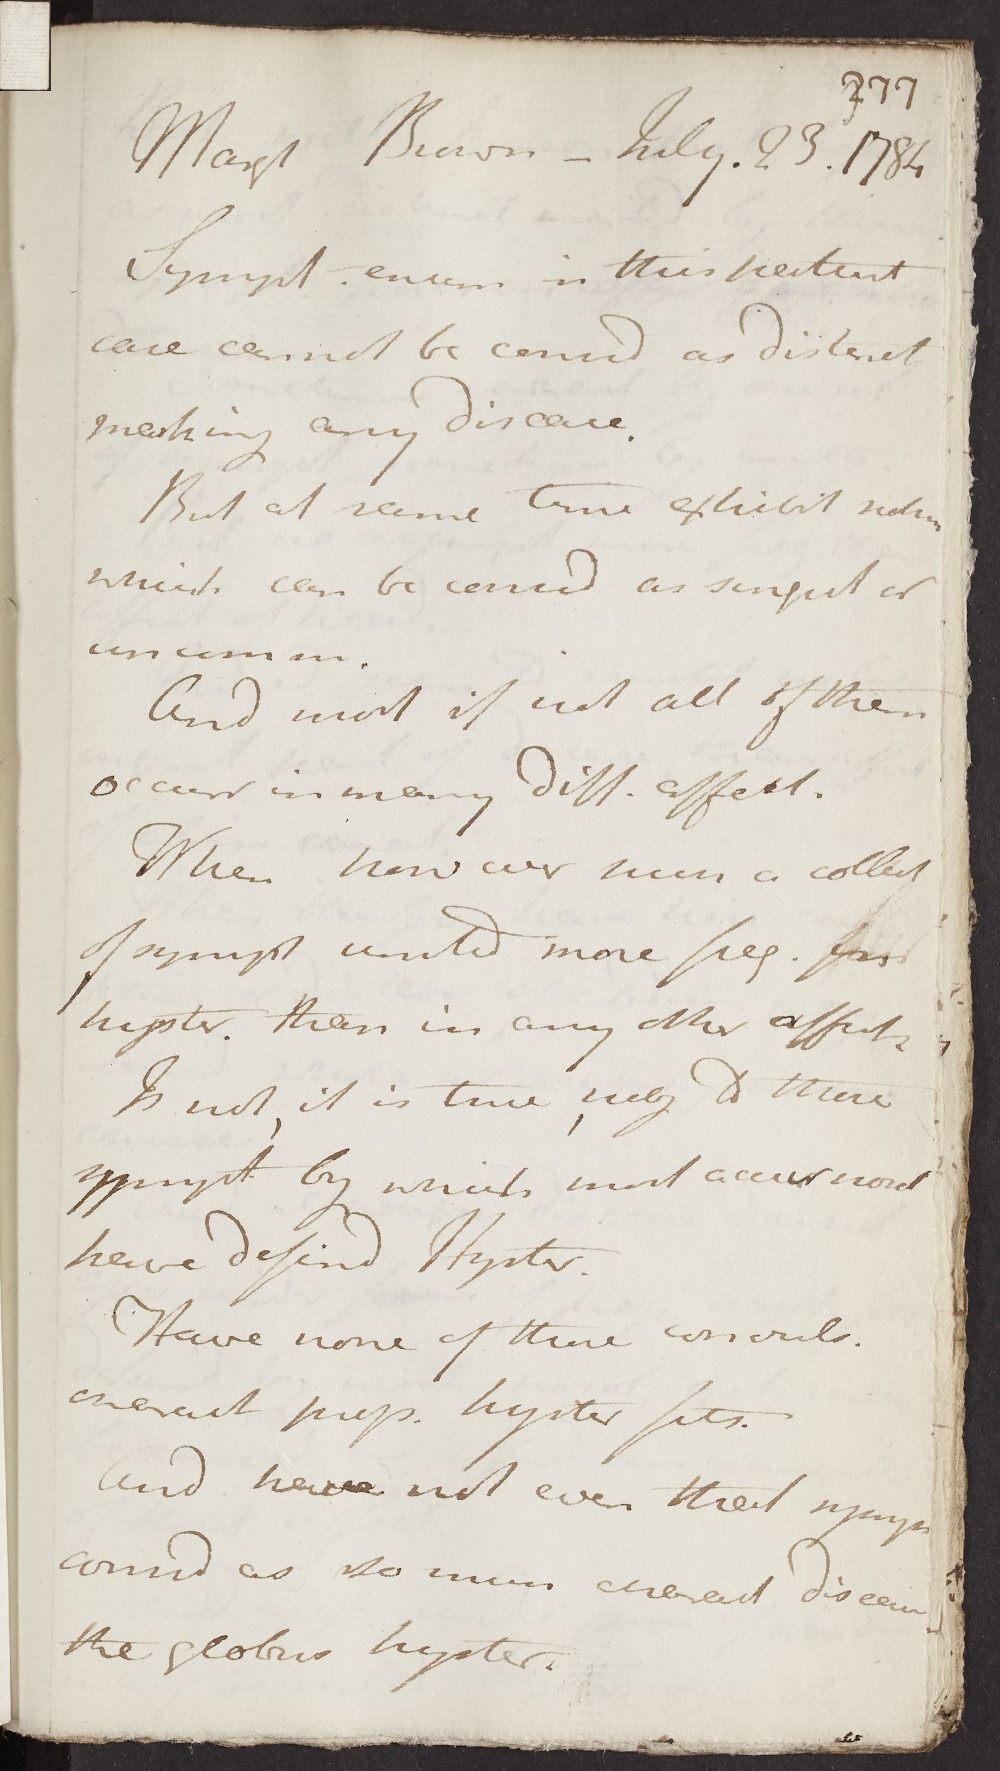 277
Margt Brown - July. 23. 1784
Sympt. enum in this patient
case cannot be consid as distinct
marking any disease.
But at same time exhibit
which can be consid as singul or
uncomm.
And most if not all of them
occurr in many diff. affect.
When however a collect
of sympt united more freq.
hyster. than in any other affect.
Is not, it is true, to those
sympt by which most accur nosol
have defind Hyster.
Have none of those convuls.
hyster fits.
And have not even that symp
consid as so disease
the globus hyster.